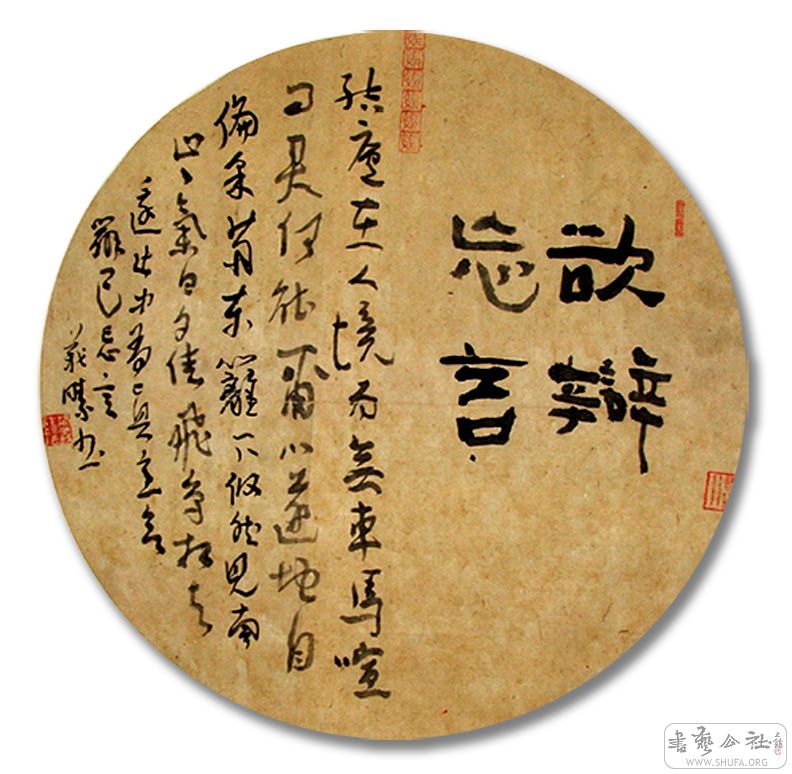 欲辯
忘言
結廬在人境而無車馬喧
問君何能爾心遠地自
偏采菊東籬下悠然見南
山〻氣日夕佳飛鳥相與
還此中有真意欲
辯已忘言
書藝公社
WWW.SHUFA.ORG